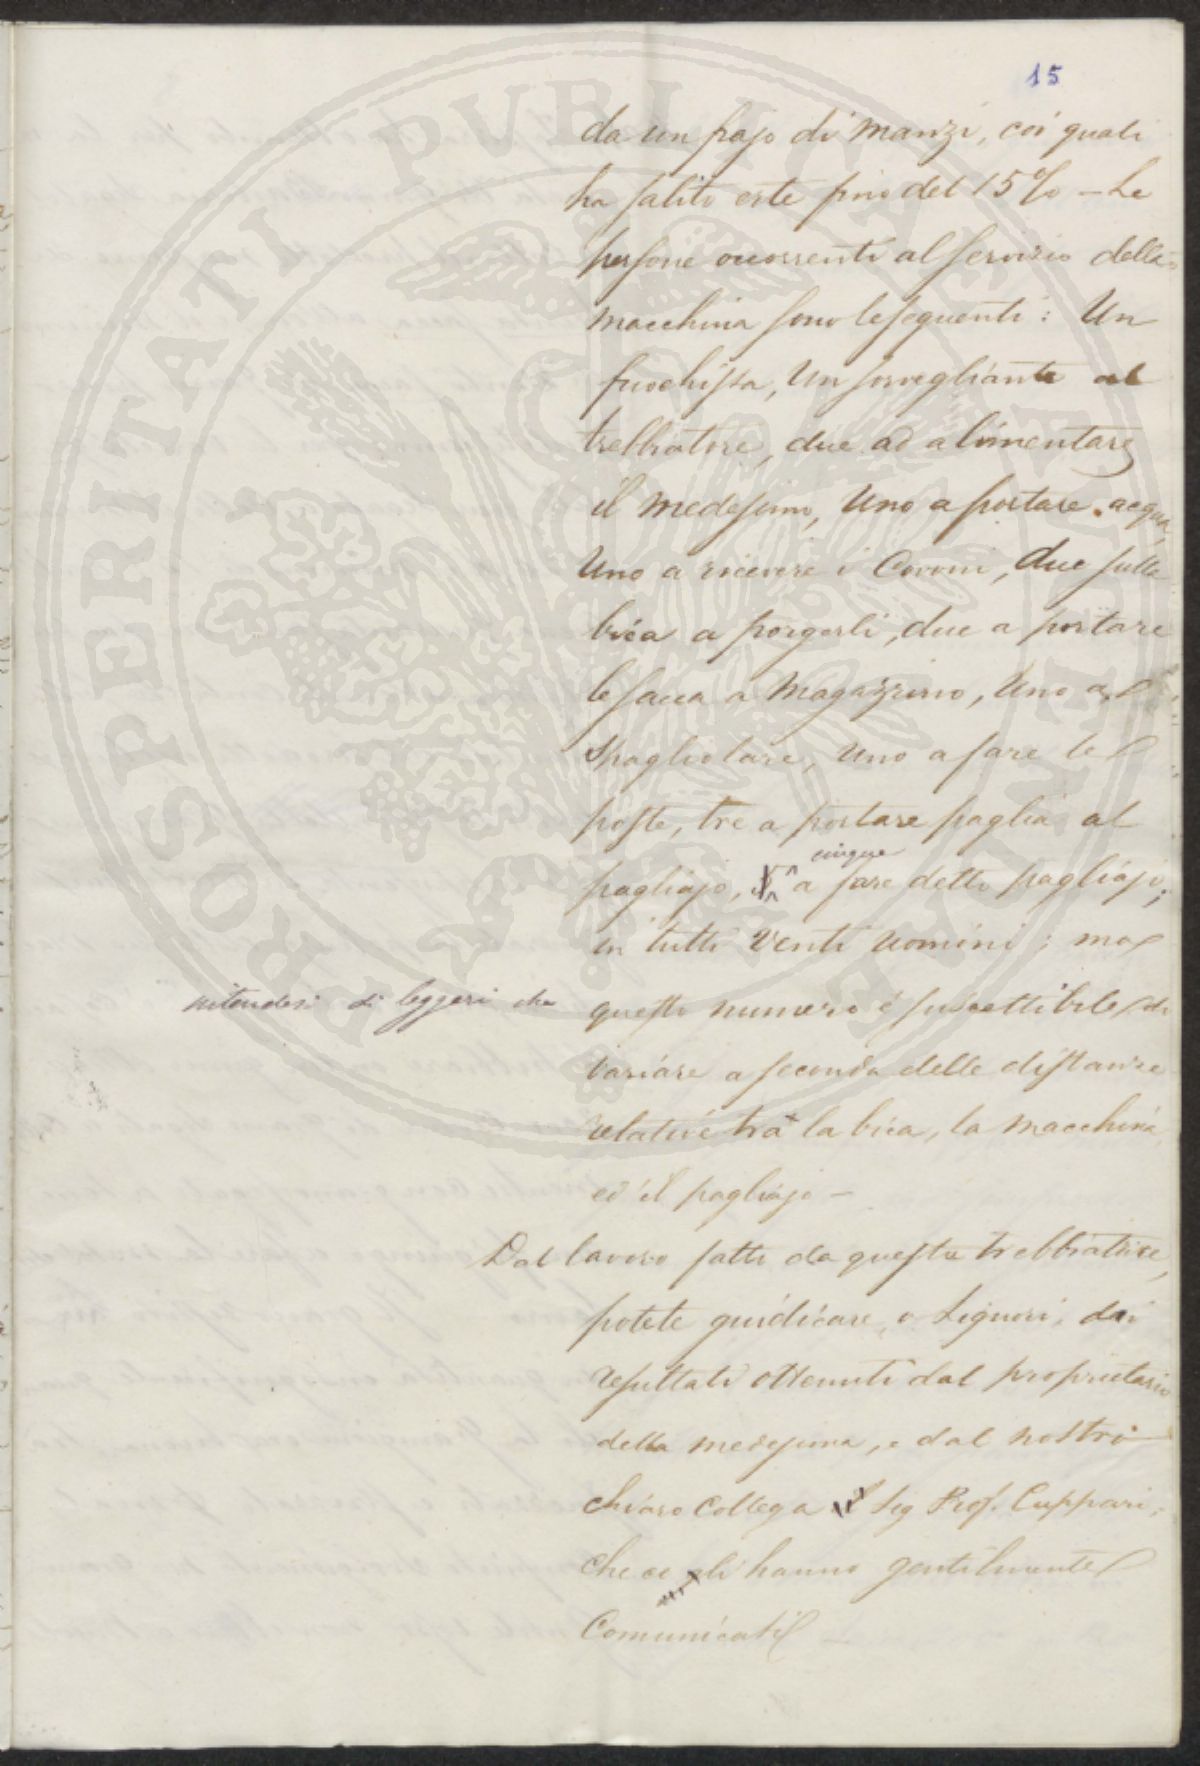 15
da un pajo di Manzi, coi quali
ha salito erte fino del 15% – Le
persone occorrenti al servizio della
macchina sono le seguenti: Un
fuochista, Un sorvegliante al
trebbiatore, due ad alimentare
il medesimo, Uno a portare acqua,
Uno a ricevere i Covoni, due sulla
bica a porgerli, due a portare
le sacca a Magazzino, Uno a
spagliolare, uno a fare le
poste, tre a portare paglia al
cinque
pagliajo, a fare detto pagliajo;
in tutti venti uomini; ma
intendesi di leggeri che
questo numero è suscettibile di
variare a seconda delle distanze
relative tra la bica, la macchina
ed il pagliajo –
Dal lavoro fatto da questa trebbiatrice,
potete giudicare, o Signori, dai
resultati ottenuti dal proprietario
della medesima, e dal nostro
chiaro Collega il Sig Prof. Cuppari,
che ce li hanno gentilmente
Comunicati –
PROSPERITATI PUBLICAE AUGENDAE